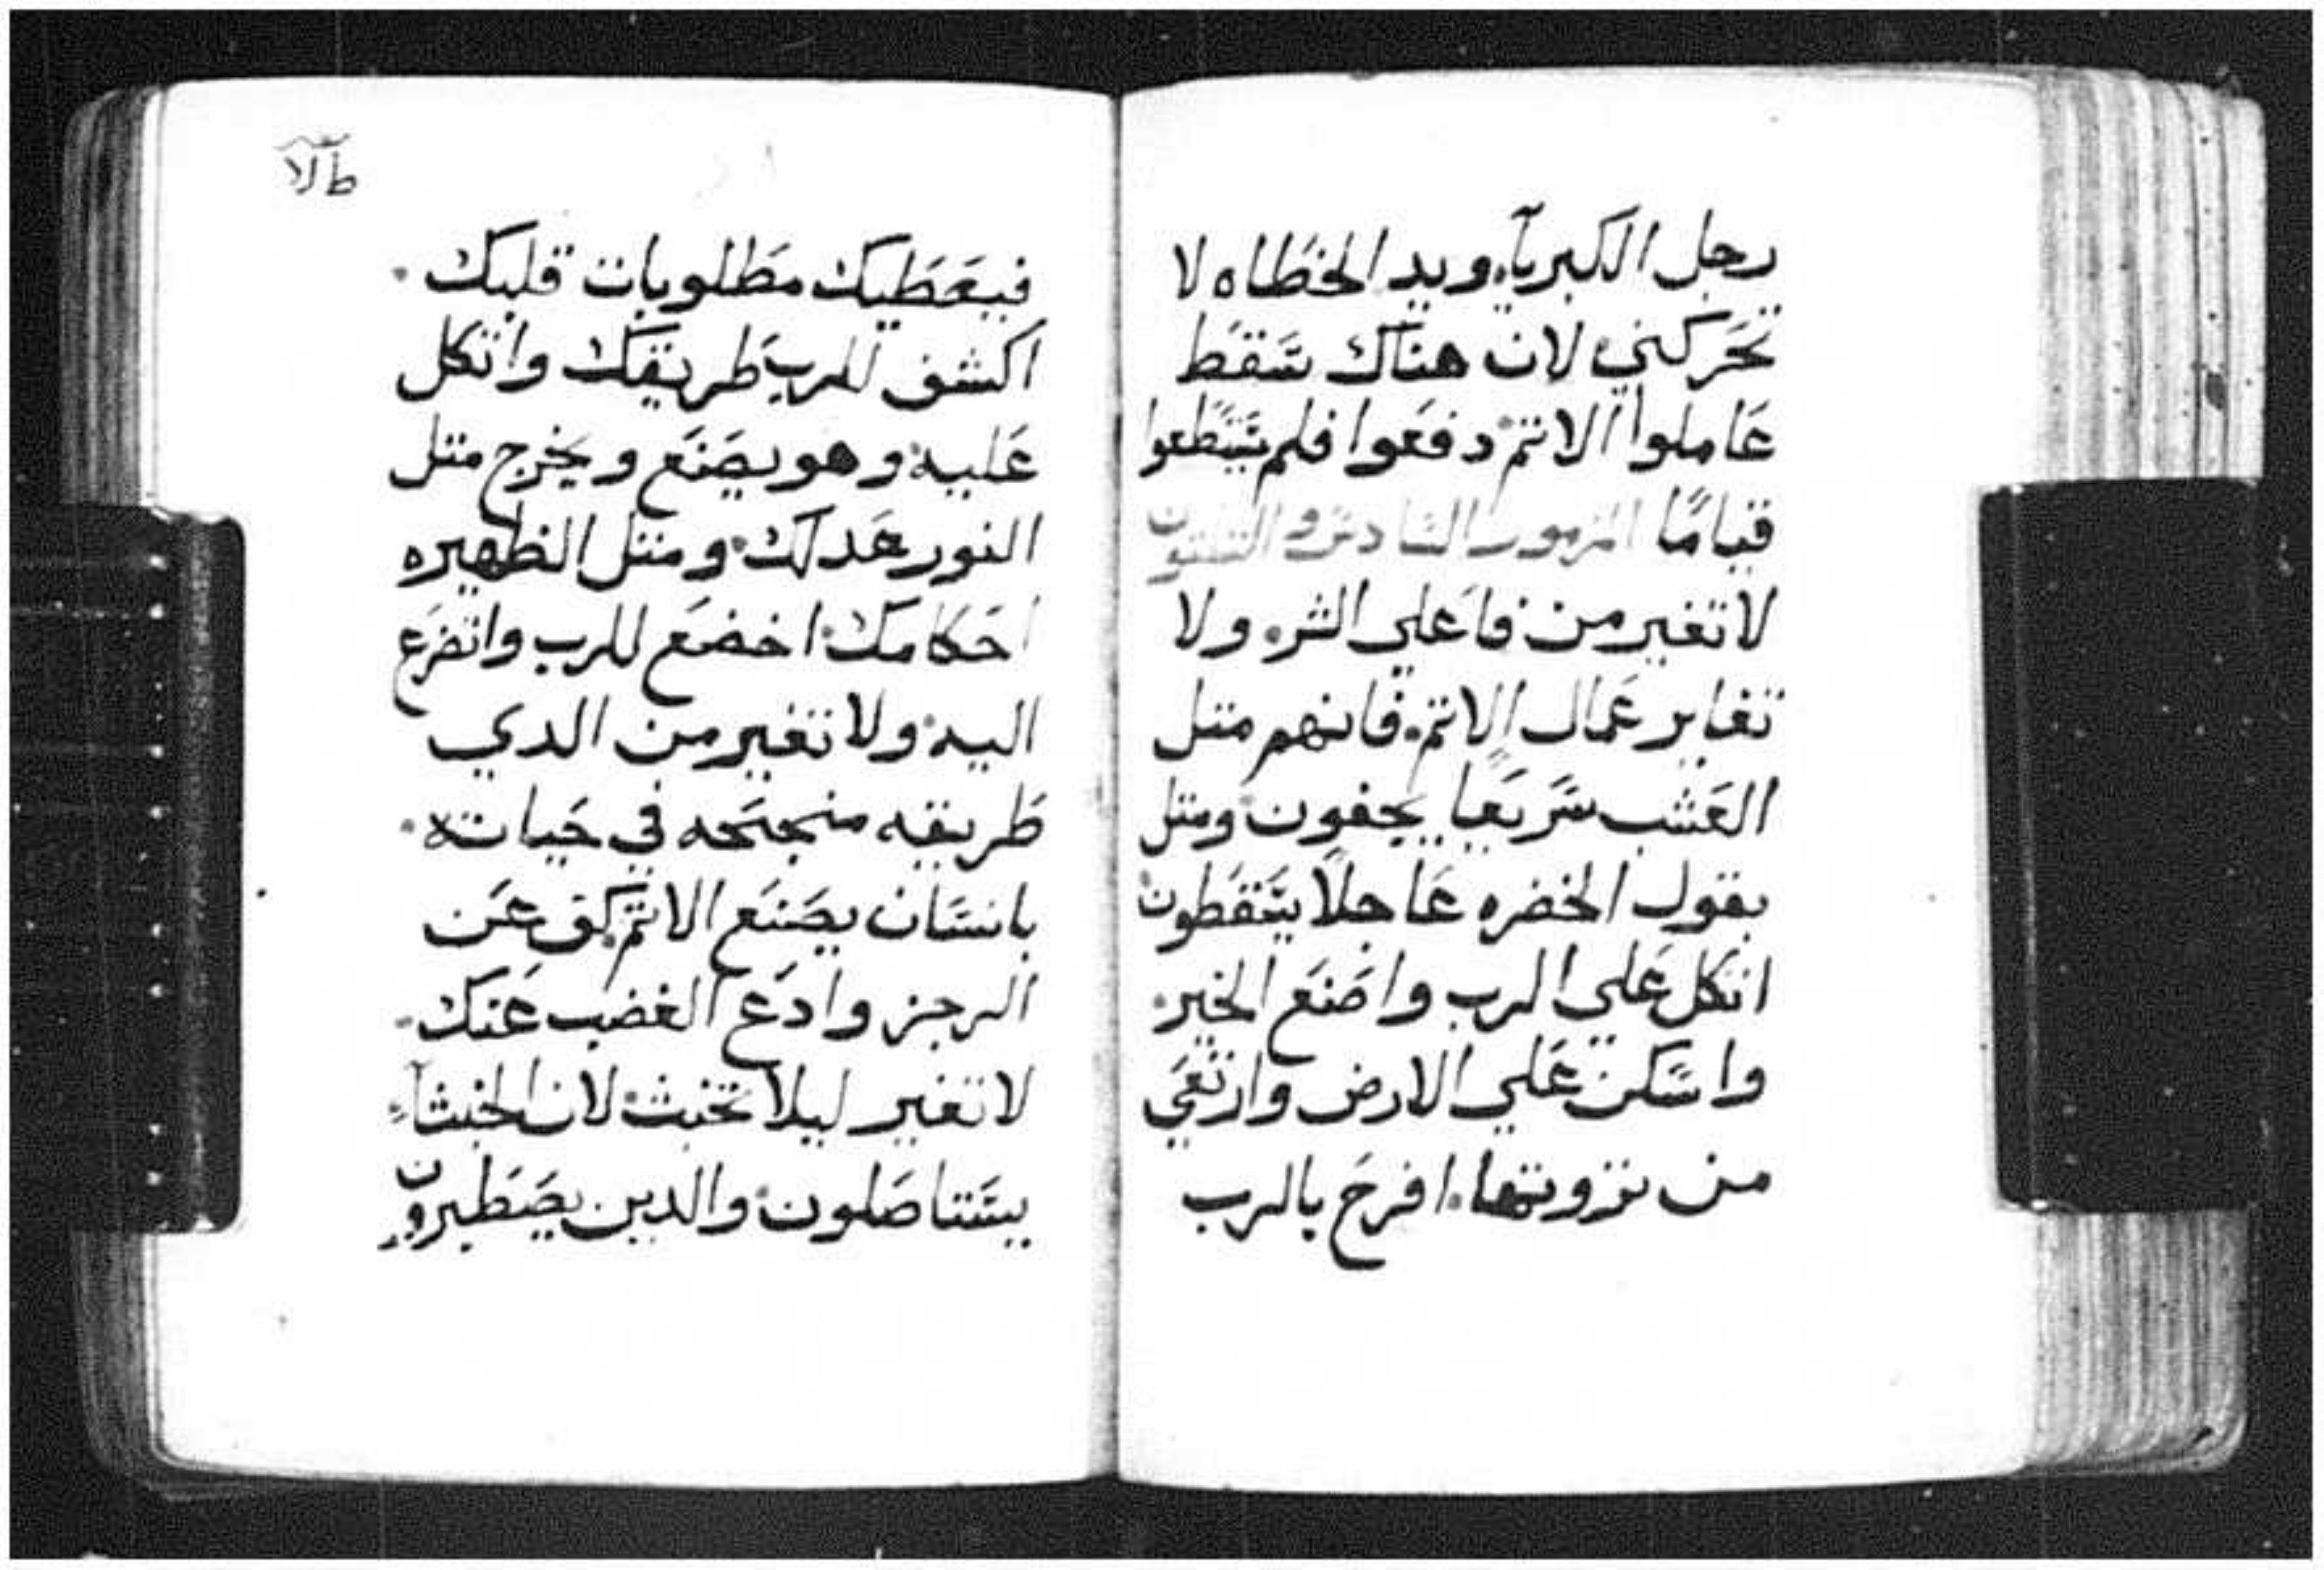 رجل الكبرياء ويد الخطاه لا
تحركني لان هناك سقط
عاملوا الاتم دفعوا فلم يستطعوا
قيامًا المزمور السادس والتلتون
لا تغير من فاعلي الشر ولا
تغاير عمال الاتم فانهم متل
العشب سريعا يجفون ومتل
بقول الخضره عاجلا يسقطون
اتكل علي الرب واصنع الخير
واسكن علي الارض وارتعي
من تزوتها افرح بالرب
طلا
فيعطيك مطلوبات قلبك
اكشف للرب طريقك واتكل
عليه وهو يصنع ويخرج متل
النور عدلك ومتل الظهيره
احكامك اخضع للرب واتضرع
اليه ولا تغير من الدي
طريقه منجحه في حياته
بانسان يصنع الاتم كف عن
الرجز وادع الغضب عنك
لا تغير ليلا تخبث لان الخبثاء
يستاصلون والدين يصطبرون